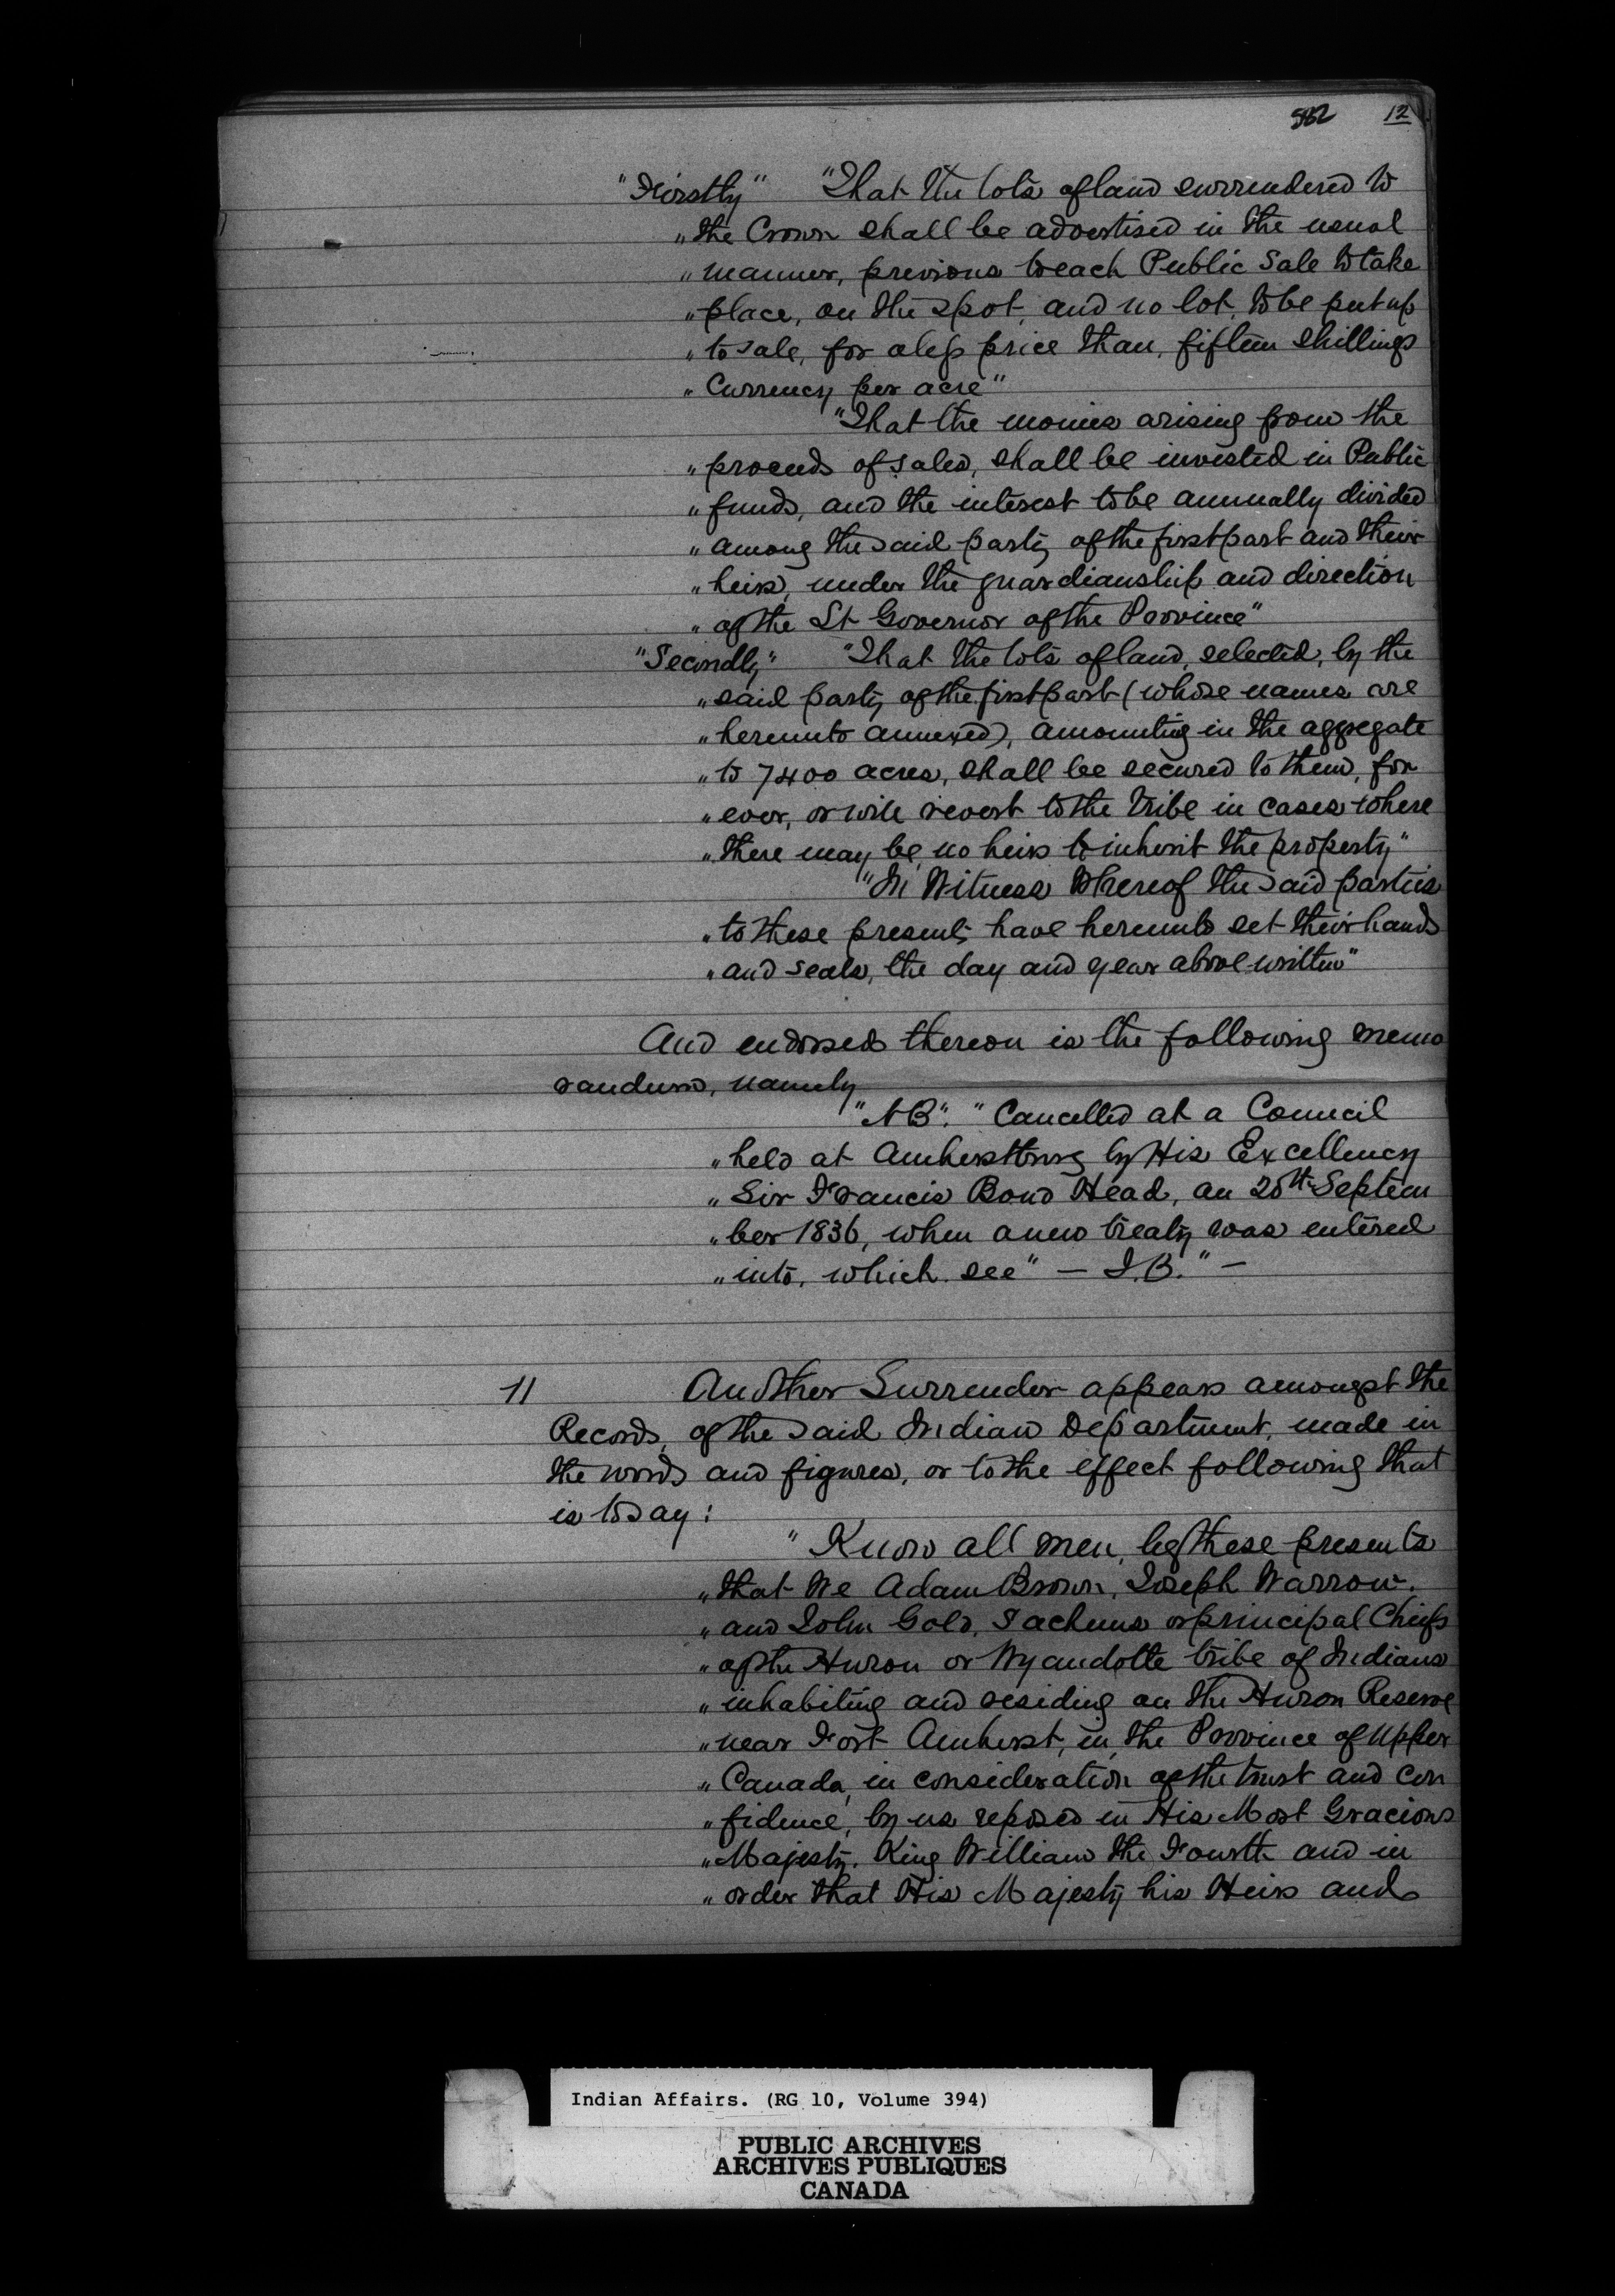 582 12
"Firstly" "That the lots of land surrendered to
"the Crown shall be advertised in the usual
"manner, previous to each Public Sale to take
"place, on the spot, and no lot, to be put up
"to sale, for a less price than, fifteen shillings
"Currency per acre"
"That the monies arising from the
"proceeds of sales, shall be invested in Public
"funds, and the interest to be annually divided
"among the said party of the first part and their
"heirs, under the guardianship and direction
"of the Lt Governor of the Province"
"Secondly" "That the lots of land, selected, by the
"said party of the first part (whose names are
"hereunto annexed), amounting in the aggregate
"to 7400 acres, shall be secured to them, for
"ever, or will revert to the tribe in cases where
"there may be no heirs to inherit the property"
"In Witness Whereof the said parties
"to these presents have hereunto set their hands
"and seals, the day and year above written"
And endorsed thereon is the following memo
randum, namely
"NB". "Cancelled at a Council
"held at Amherstburg by His Excellency
"Sir Francis Bond Head, on 20th Septem
"ber 1836, when a new treaty was entered
"into, which see" — J.B." —
11 Another Surrender appears amongst the
Records, of the said Indian Department, made in
the words and figures, or to the effect following that
is to say:
"Know all men, by these presents
"that We Adam Brown, Joseph Warrow.
"and John Gold, Sachems or principal Chiefs
"of the Huron or Wyandotte tribe of Indians
"inhabiting and residing on the Huron Reserve
"near Fort Amherst, in the Province of Upper
"Canada, in consideration of the trust and con
"fidence, by us reposed in His Most Gracious
"Majesty. King William the Fourth and in
"order that His Majesty his Heirs and
Indian Affairs. (RG 10, Volume 394)
PUBLIC ARCHIVES
ARCHIVES PUBLIQUES
CANADA